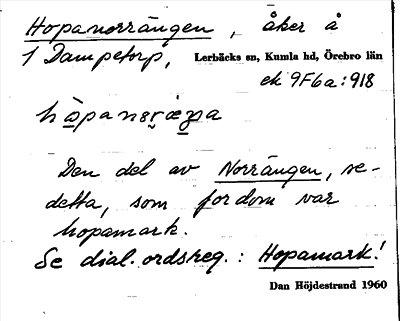 Hopanorrängen, åker å
1 Dampetorp, Lerbäcks sn, Kumla hd, Örebro län
ek 9F6a:918
Den del av Norrängen, se-
detta, som fordom var
hopamark.
Se dial.ordsreg.: Hopamark!
Dan Höjdestrand 1960